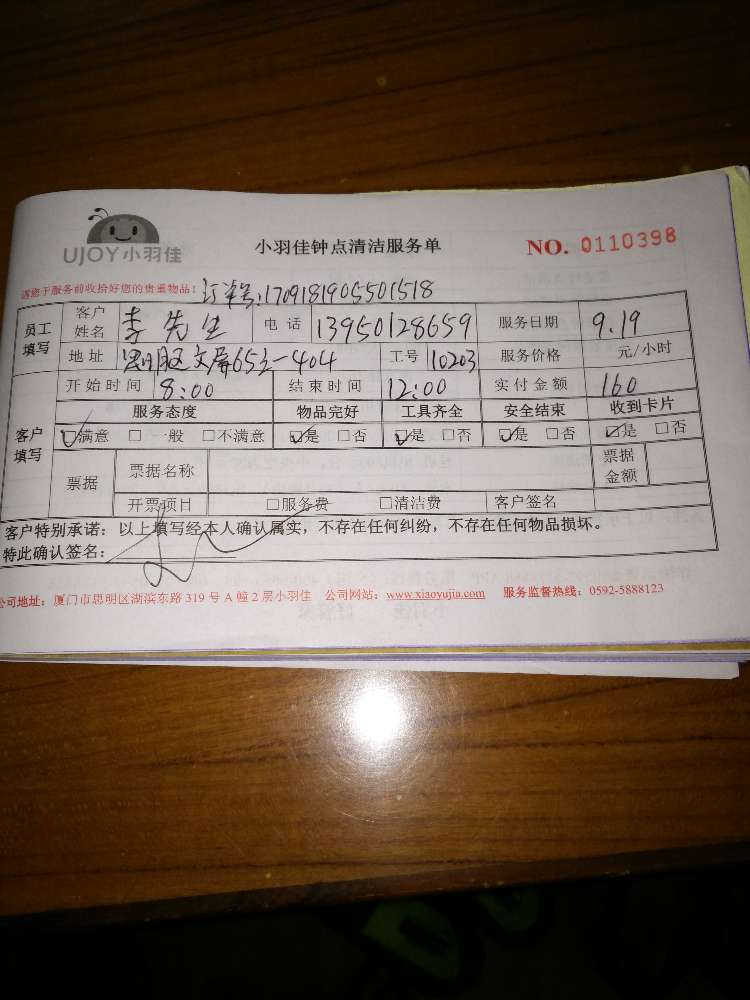 UJOY小羽佳
小羽佳钟点清洁服务单
NO. 0110398
请您于服务前收拾好您的贵重物品！ 订单号:1709181905501518
员工填写 客户姓名 李先生 电话 13950128659 服务日期 9.19
地址 思明区文屏65之一404 工号 10203 服务价格 元/小时
客户填写 开始时间 8:00 结束时间 12:00 实付金额 160
服务态度 物品完好 工具齐全 安全结束 收到卡片
☑满意 □一般 □不满意 ☑是 □否 ☑是 □否 ☑是 □否 ☑是 □否
票据 票据名称 票据金额
开票项目 □服务费 □清洁费 客户签名
客户特别承诺：以上填写经本人确认属实，不存在任何纠纷，不存在任何物品损坏。
特此确认签名：
公司地址：厦门市思明区湖滨东路 319 号 A 幢 2 层小羽佳 公司网站：www.xiaoyujia.com 服务监督热线：0592-5888123